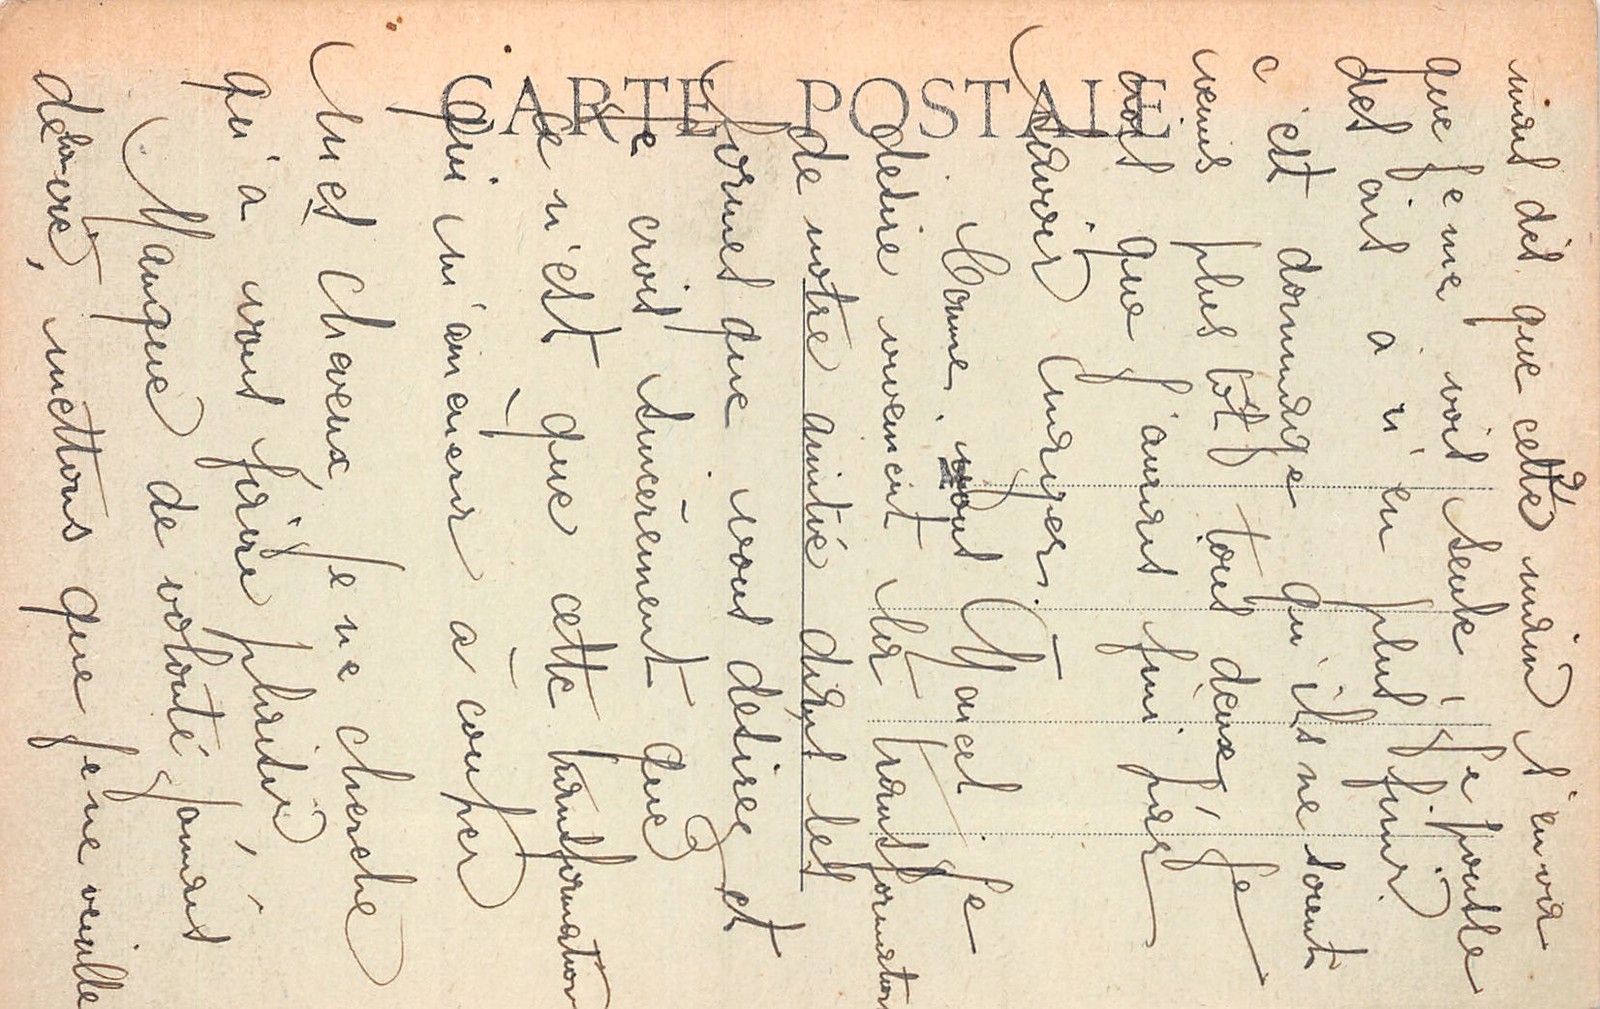 CARTE POSTALE
mais dès que cette main s'en va
que je me vois seule, je pousse
des cris à n'en plus finir.
c'est dommage qu'ils ne soient
venus plus tôt tous deux, je
crois que j'aurais fini par
savoir nager.
Comme, vous Marcel je
desire vivement la transformation
de notre amitié dans les
formes que vous desirez et
je crois sincèrement que
ce n'est que cette transformation
qui m'amenera à couper
mes cheveux, je ne cherche
qu'à vous faire plaisir,
Manque de volonté jamais
de la vie, mettons que je ne veuille